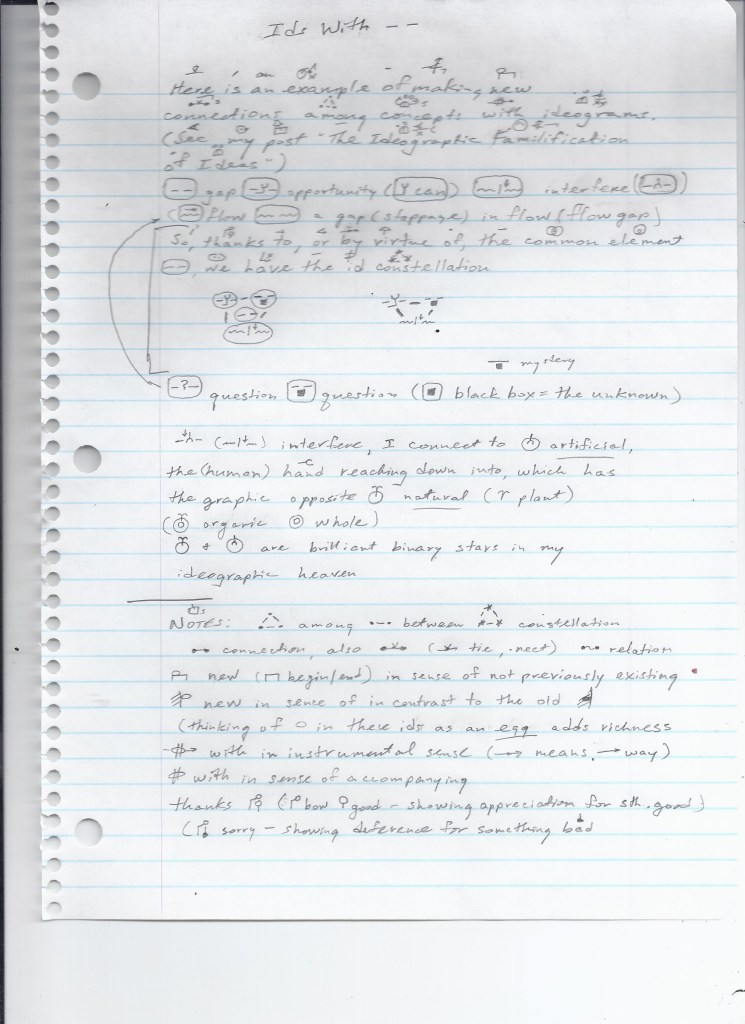 Ids With --
Here is an example of making new
connections among concepts with ideograms.
(See my post "The Ideographic Familification
of Ideas")
-- gap -Y- opportunity (Y can) interfere
flow a gap (stoppage) in flow (flow gap)
So, thanks to, or by virtue of, the common element
--, we have the id constellation
mystery
-?- question question (■ black box = the unknown)
interfere, I connect to artificial,
the (human) hand reaching down into, which has
the graphic opposite natural (plant)
(organic ◎ whole)
+ are brilliant binary stars in my
ideographic heaven
NOTES: among between constellation
connection, also (tie, -nect) relation
new (begin/end) in sense of not previously existing
new in sense of in contrast to the old
(thinking of O in these ids as an egg adds richness
with in instrumental sense (means, → way)
with in sense of accompanying
thanks (bow good - showing appreciation for sth. good)
(sorry - showing deference for something bad